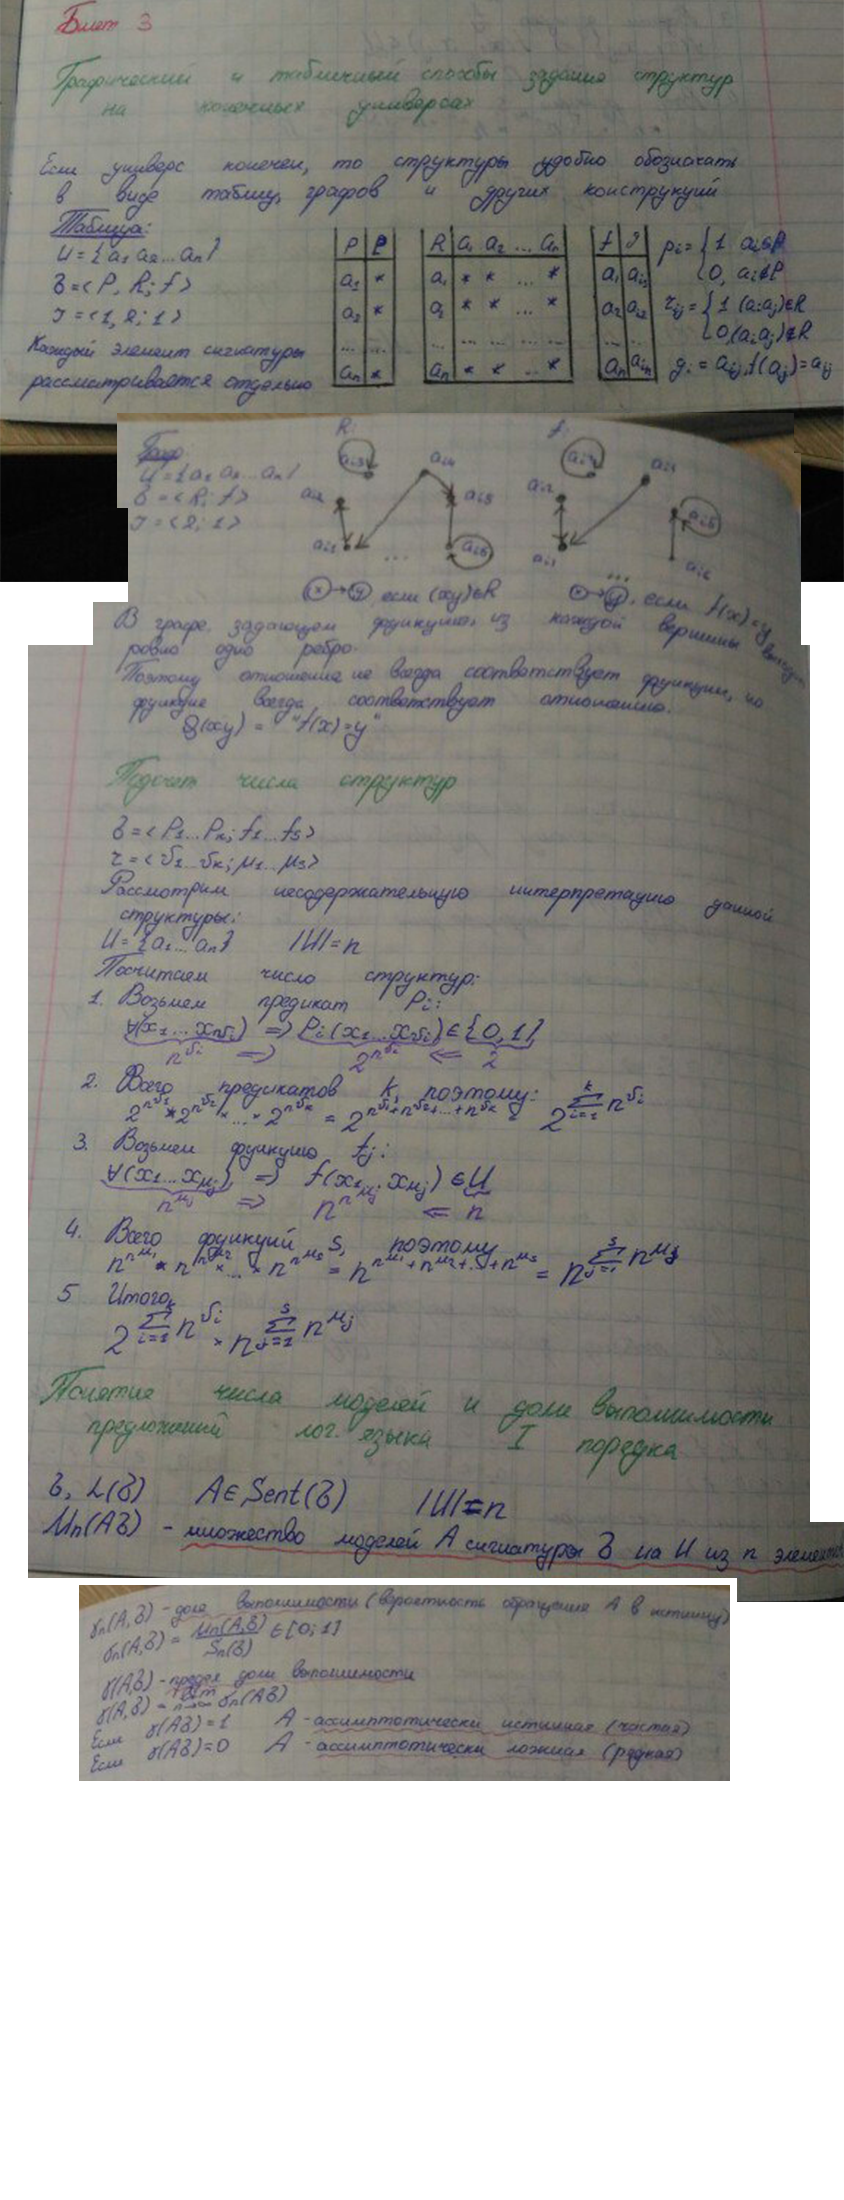 Билет 3
Графический и табличный способы задания структур
на конечных универсах
Если универс конечен, то структуры удобно обозначать
в виде таблиц, графов и других конструкций
Таблица:
U = {a₁ a₂ ... aₙ}
σ = <P, R; f>
τ = <1, 2; 1>
Каждый элемент сигнатуры
рассматривается отдельно
P | p
a₁ | *
a₂ | *
... | ...
aₙ | *
R | a₁ a₂ ... aₙ
a₁ | * * ... *
a₂ | * * ... *
... | ... ... ... ...
aₙ | * * ... *
f | g
a₁ | aᵢ₁
a₂ | aᵢ₂
... | ...
aₙ | aᵢₙ
pᵢ = { 1 aᵢ∈P
0, aᵢ∉P
rᵢⱼ = { 1 (aᵢaⱼ)∈R
0,(aᵢaⱼ)∉R
gᵢ = aᵢⱼ, f(aⱼ) = aᵢⱼ
Граф:
U = {a₁ a₂ ... aₙ}
σ = <R; f>
τ = <2; 1>
R: aᵢ₃ aᵢ₄ aᵢ₂ aᵢ₅ aᵢ₁ ... aᵢ₆
f: aᵢ₃ aᵢ₄ aᵢ₂ aᵢ₅ aᵢ₁ ... aᵢ₆
x → y, если (xy)∈R
x → y, если f(x)=y
В графе, задающем функцию, из каждой вершины выходит
ровно одно ребро.
Поэтому отношение не всегда соответствует функции, но
функция всегда соответствует отношению.
Q(xy) = "f(x)=y"
Подсчет числа структур
σ = <P₁...Pₖ; f₁...fₛ>
τ = <ν₁...νₖ; μ₁...μₛ>
Рассмотрим несодержательную интерпретацию данной
структуры:
U = {a₁...aₙ} |U| = n
Посчитаем число структур:
1. Возьмем предикат Pᵢ:
∀(x₁...x_νᵢ) => Pᵢ(x₁...x_νᵢ) ∈ {0,1}
n^νᵢ => 2^n^νᵢ <= 2
2. Всего предикатов k, поэтому:
2^n^ν₁ × 2^n^ν₂ × ... × 2^n^νₖ = 2^(n^ν₁+n^ν₂+...+n^νₖ) = 2^(∑ᵢ₌₁ᵏ n^νᵢ)
3. Возьмем функцию fⱼ:
∀(x₁...x_μⱼ) => f(x₁...x_μⱼ) ∈ U
n^μⱼ => n^n^μⱼ <= n
4. Всего функций s, поэтому
n^n^μ₁ × n^n^μ₂ × ... × n^n^μₛ = n^(n^μ₁+n^μ₂+...+n^μₛ) = n^(∑ⱼ₌₁ˢ n^μⱼ)
5 Итого
2^(∑ᵢ₌₁ᵏ n^νᵢ) × n^(∑ⱼ₌₁ˢ n^μⱼ)
Понятие числа моделей и доли выполнимости
предложений лог. языка I порядка
σ, L(σ) A∈Sent(σ) |U|=n
μₙ(Aσ) - множество моделей A сигнатуры σ на U из n элементов
γₙ(A,σ) - доля выполнимости (вероятность обращения A в истину)
γₙ(A,σ) = μₙ(A,σ) / Sₙ(σ) ∈ [0;1]
γ(A,σ) - предел доли выполнимости
γ(A,σ) = lim n→∞ γₙ(Aσ)
Если γ(Aσ)=1 A - ассимптотически истинная (частая)
Если γ(Aσ)=0 A - ассимптотически ложная (редкая)